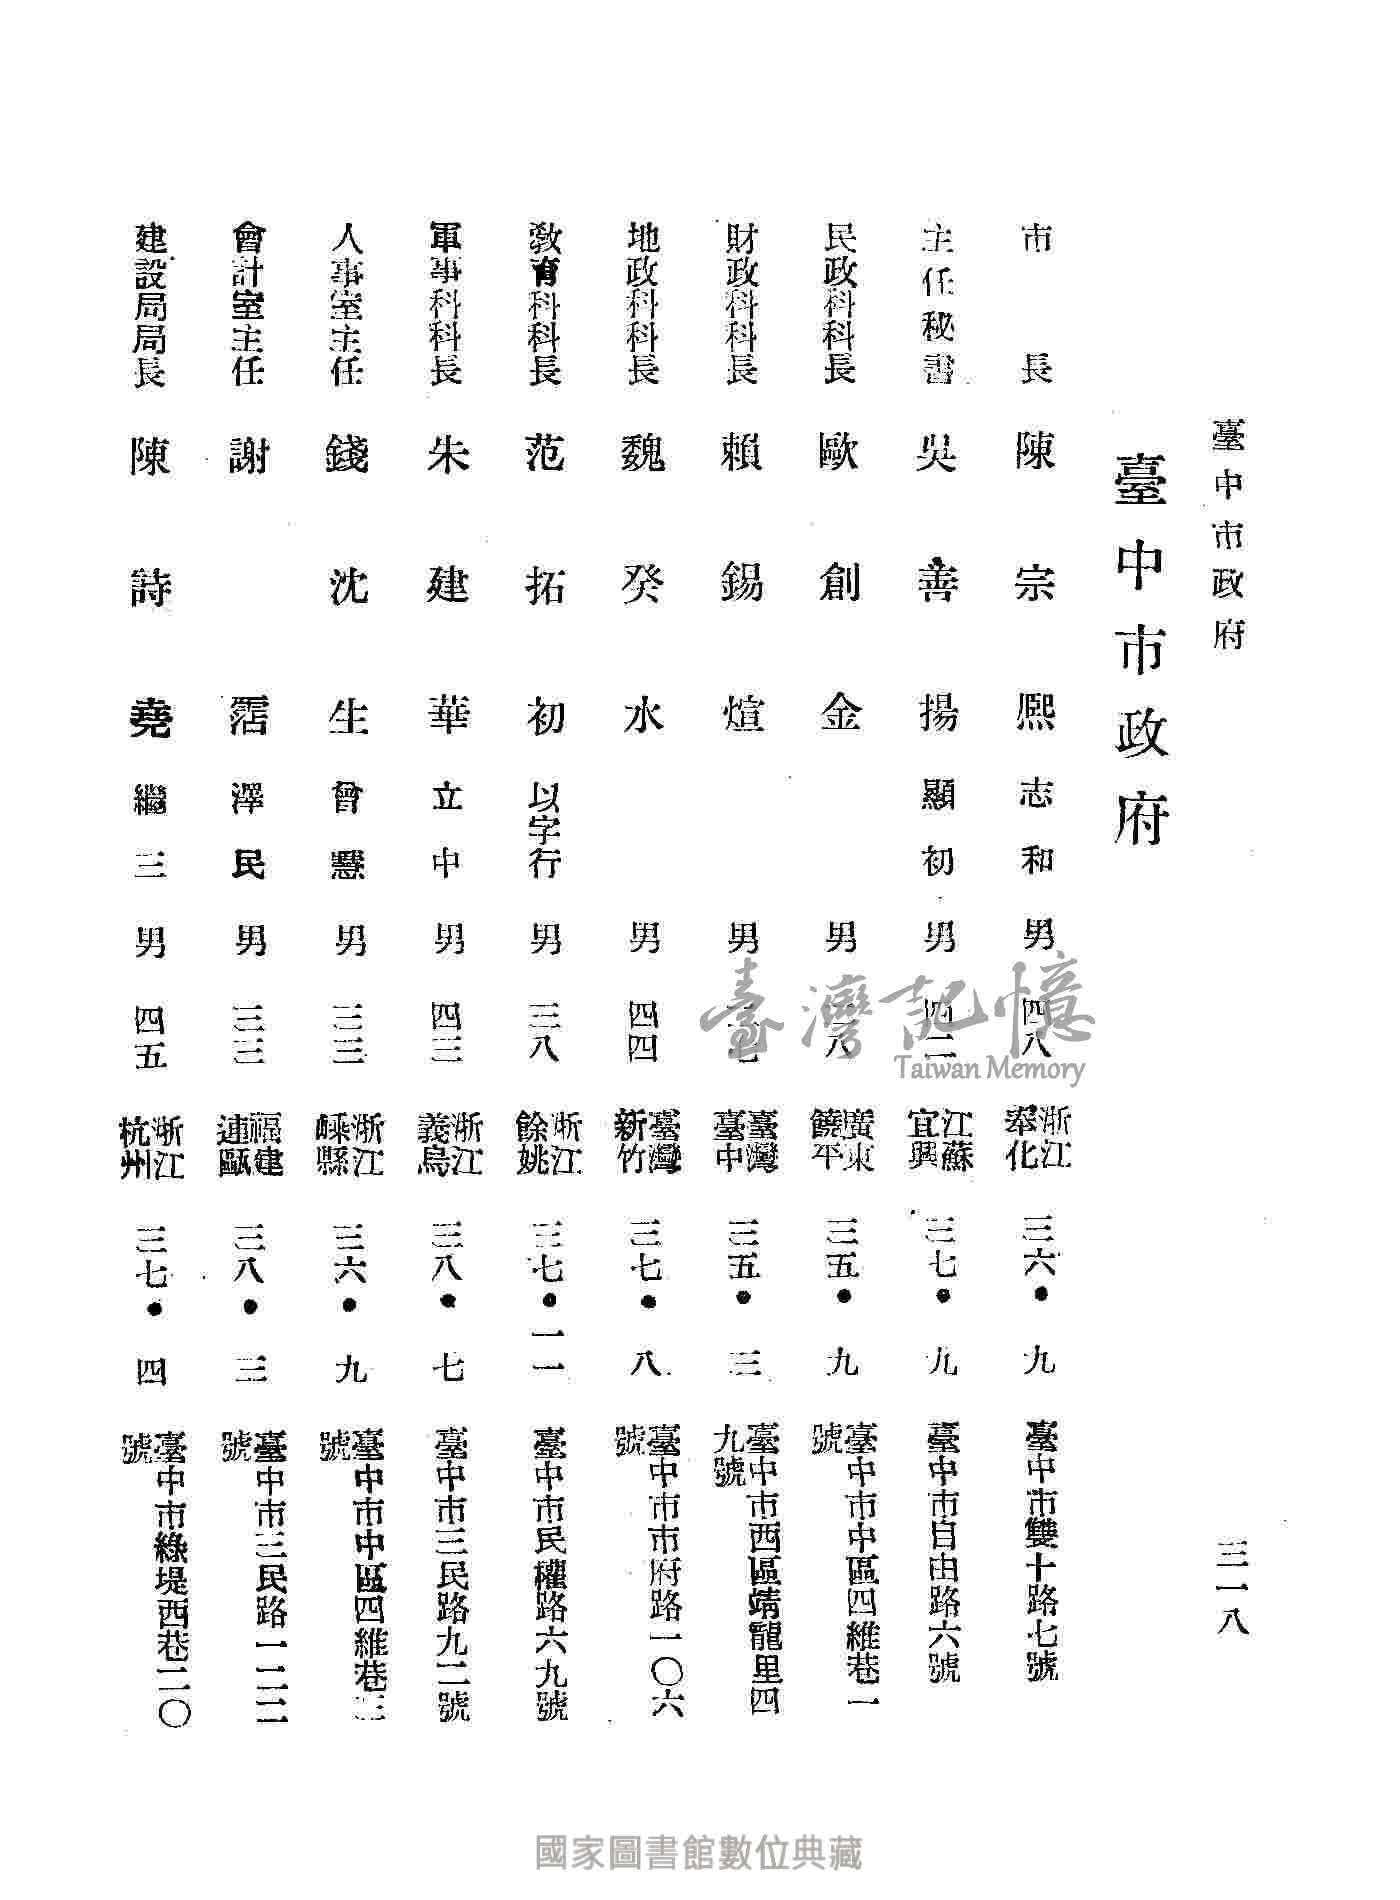 臺中市政府
三一八
臺中市政府
市長 陳宗熙 志和 男 四八 浙江奉化 三六•九 臺中市雙十路七號
主任秘書 吳善揚 顯初 男 四二 江蘇宜興 三七•九 臺中市自由路六號
民政科科長 歐創金 男 八 廣東饒平 三五•九 臺中市中區四維巷一號
財政科科長 賴錫煊 男 臺灣臺中 三五•三 臺中市西區靖龍里四九號
地政科科長 魏癸水 男 四四 臺灣新竹 三七•八 臺中市市府路一〇六號
教育科科長 范拓初 以字行 男 三八 浙江餘姚 三七•一一 臺中市民權路六九號
軍事科科長 朱建華 立中 男 四三 浙江義烏 三八•七 臺中市三民路九二號
人事室主任 錢沈生 曾慧 男 三三 浙江嵊縣 三六•九 臺中市中區四維巷三號
會計室主任 謝霑 澤民 男 三三 福建連 三八•三 臺中市三民路一二二號
建設局局長 陳詩堯 繼三 男 四五 浙江杭州 三七•四 臺中市綠堤西巷二〇號
臺灣記憶
Taiwan Memory
國家圖書館數位典藏